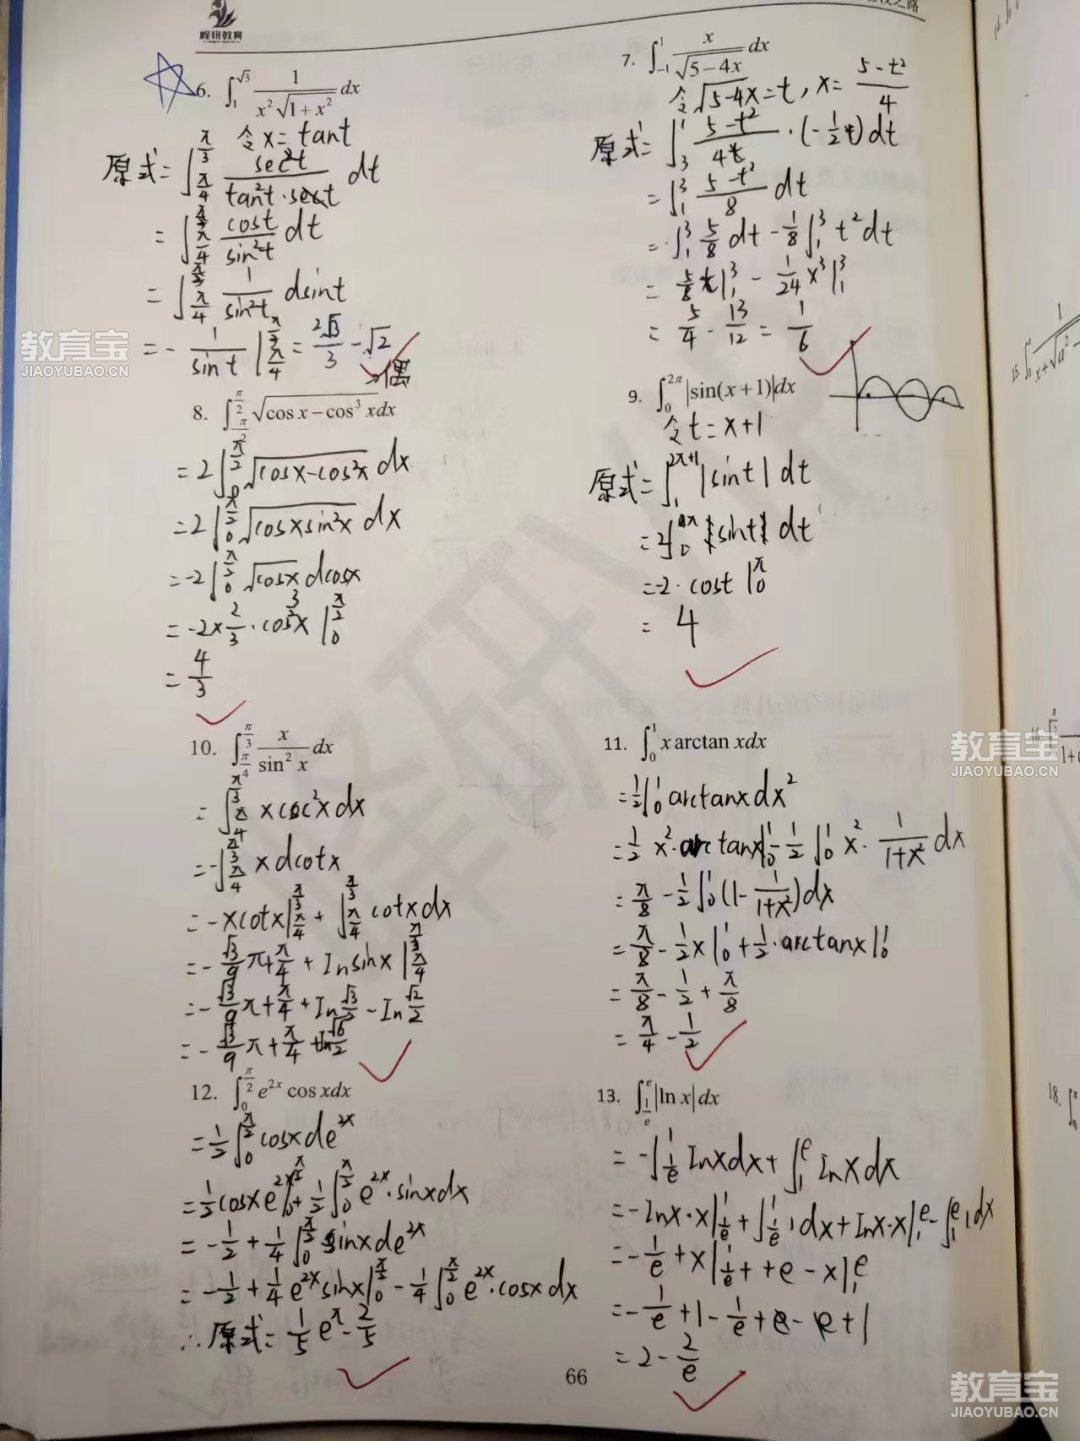 屹研教育
6. ∫₁^√3 1/(x²√(1+x²)) dx
令x=tant
原式=∫_{π/4}^{π/3} sec²t/(tan²t·sect) dt
=∫_{π/4}^{π/3} cost/sin²t dt
=∫_{π/4}^{π/3} 1/sin²t dsint
=-1/sint |_{π/4}^{π/3} = 2√3/3 - √2
偶
8. ∫_{-π/2}^{π/2} √(cos x-cos³ x)dx
=2∫_0^{π/2} √(cosx-cos³x) dx
=2∫_0^{π/2} √(cosxsin²x) dx
=-2∫_0^{π/2} √cosx dcosx
=-2×2/3·cos^{3/2}x |_0^{π/2}
=4/3
10. ∫_{π/4}^{π/3} x/sin² x dx
=∫_{π/4}^{π/3} xcsc²xdx
=-∫_{π/4}^{π/3} xdcotx
=-xcotx|_{π/4}^{π/3} + ∫_{π/4}^{π/3} cotxdx
=-√3/9 π+π/4 + Insinx |_{π/4}^{π/3}
=-√3/9 π+π/4+In√3/2-In√2/2
=-√3/9 π+π/4+In√6/2
12. ∫_0^{π/2} e^{2x} cos xdx
=1/2∫_0^{π/2} cosxde^{2x}
=1/2cosxe^{2x}|_0^{π/2}+1/2∫_0^{π/2} e^{2x}·sinxdx
=-1/2+1/4∫_0^{π/2} sinxde^{2x}
=-1/2+1/4e^{2x}sinx|_0^{π/2}-1/4∫_0^{π/2} e^{2x}·cosxdx
∴原式=1/5e^π-2/5
7. ∫_{-1}^{1} x/√(5-4x) dx
令√(5-4x)=t, x=(5-t²)/4
原式=∫_3^1 (5-t²)/4t·(-1/2t)dt
=∫_1^3 (5-t²)/8 dt
=∫_1^3 5/8 dt-1/8∫_1^3 t²dt
=5/8t|_1^3-1/24x³|_1^3
=5/4-13/12=1/6
9. ∫_0^{2π} |sin(x+1)|dx
令t=x+1
原式=∫_1^{2π+1} |sint| dt
=2∫_0^π sint dt
=-2·cost|_0^π
=4
11. ∫_0^1 x arctan xdx
=1/2∫_0^1 arctanxdx²
=1/2x²·arctanx|_0^1-1/2∫_0^1 x²·1/(1+x²)dx
=π/8-1/2∫_0^1(1-1/(1+x²))dx
=π/8-1/2x|_0^1+1/2·arctanx|_0^1
=π/8-1/2+π/8
=π/4-1/2
13. ∫_{1/e}^{e} |ln x|dx
=-∫_{1/e}^1 Inxdx+∫_1^e Inxdx
=-Inx·x|_{1/e}^1+∫_{1/e}^1 1dx+Inx·x|_1^e-∫_1^e 1dx
=-1/e+x|_{1/e}^1++e-x|_1^e
=-1/e+1-1/e+e-e+1
=2-2/e
66
15.
18.
教育宝
JIAOYUBAO.CN
教育宝
JIAOYUBAO.CN
教育宝
JIAOYUBAO.CN